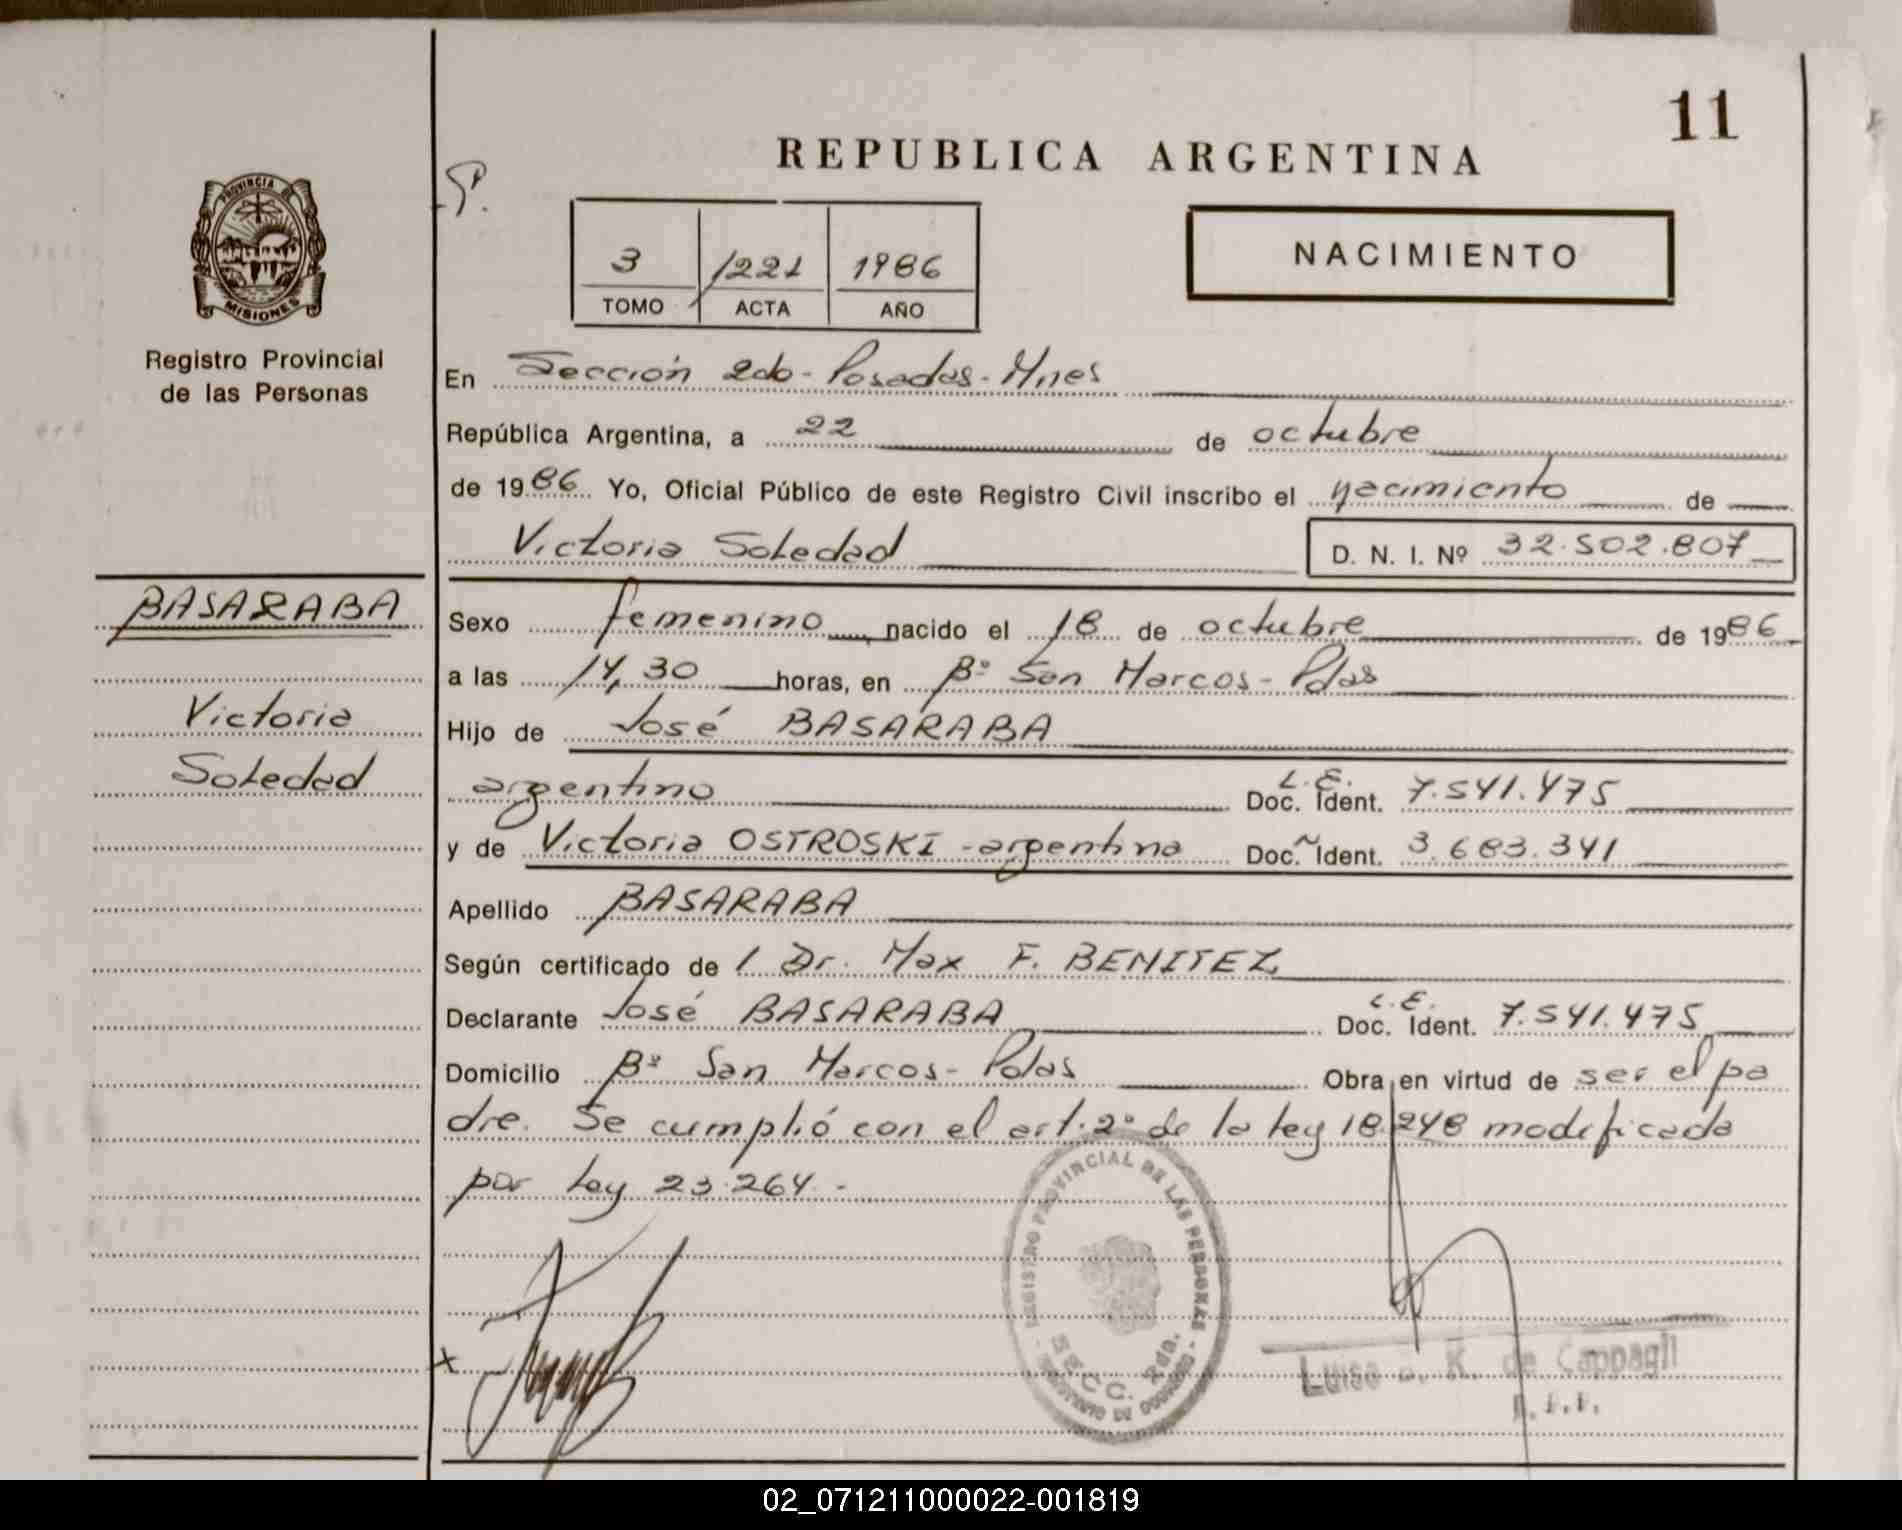 11
REPUBLICA ARGENTINA
PROVINCIA DE
MISIONES
Registro Provincial
de las Personas
3 1221 1986
TOMO ACTA AÑO
NACIMIENTO
En Sección 2da - Posadas - Mnes
República Argentina, a 22 de octubre
de 1986 Yo, Oficial Público de este Registro Civil inscribo el nacimiento de
Victoria Soledad D. N. I. Nº 32.502.807
BASARABA
Victoria
Soledad
Sexo femenino nacido el 18 de octubre de 1986
a las 14,30 horas, en Bº San Marcos - Pdas
Hijo de José BASARABA
argentino L.E. Doc. Ident. 7.541.475
y de Victoria OSTROSKI - argentina Doc. Ident. 3.683.341
Apellido BASARABA
Según certificado de 1 Dr. Max F. BENITEZ
Declarante José BASARABA L.E. Doc. Ident. 7.541.475
Domicilio Bº San Marcos - Pdas Obra en virtud de ser el pa
dre. Se cumplió con el art. 2º de la ley 18.248 modificada
por Ley 23.264.-
REGISTRO PROVINCIAL DE LAS PERSONAS
SECC. 2da.
x
de Cappagli
02_071211000022-001819